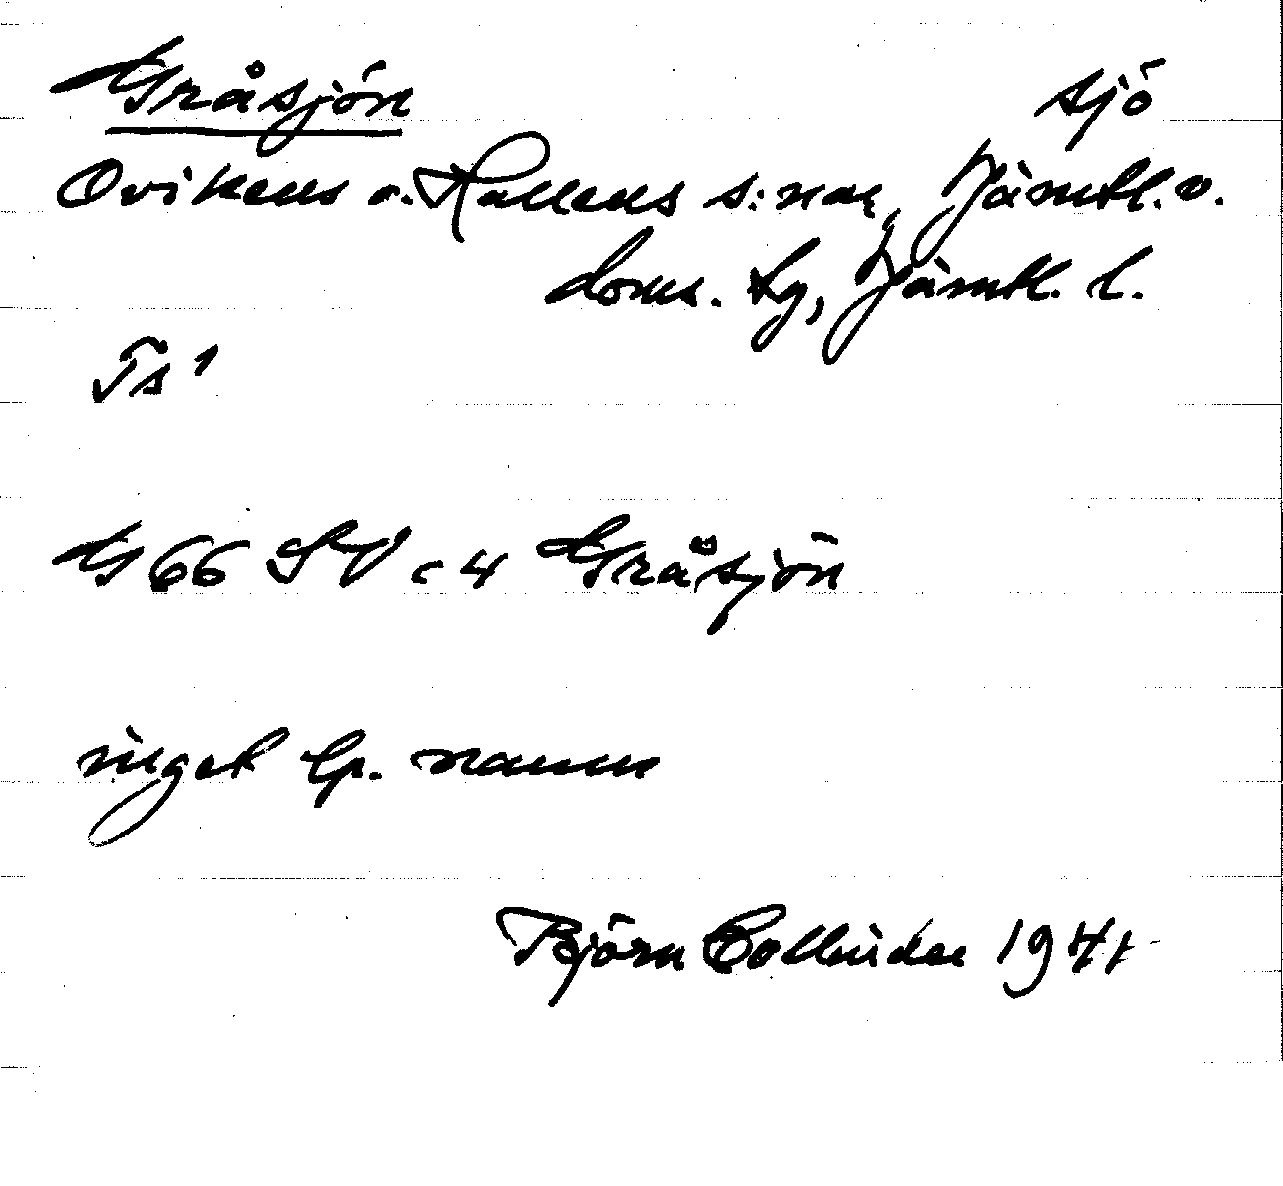 Gråsjön sjö
Ovikens o. Hallens s:nar, Jämtl. v.
doms. tg, Jämtl. l.
Ts 1
G 66 SV c 4 Gråsjön
inget lp. namn
Björn Collinder 1941